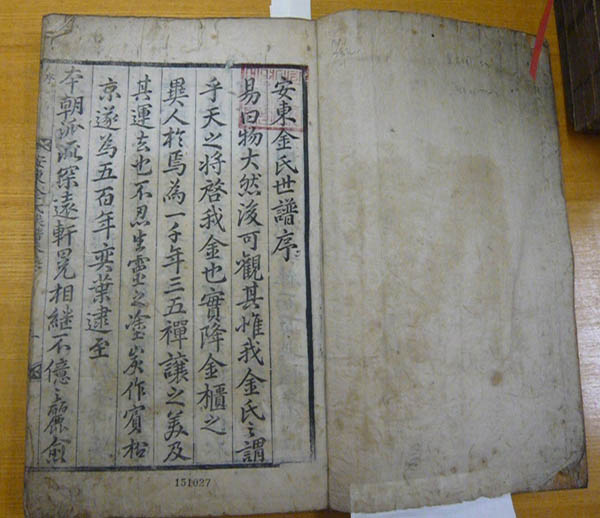 安東金氏世譜序
易曰物大然後可觀其惟我金氏之謂
乎天之將啓我金也實降金櫃之
異人於焉為一千年三五禪讓之美及
其運去也不忍生靈之塗炭作賓松
京遂為五百年奕葉逮至
本朝派流深遠軒冕相繼不億之麗
151027